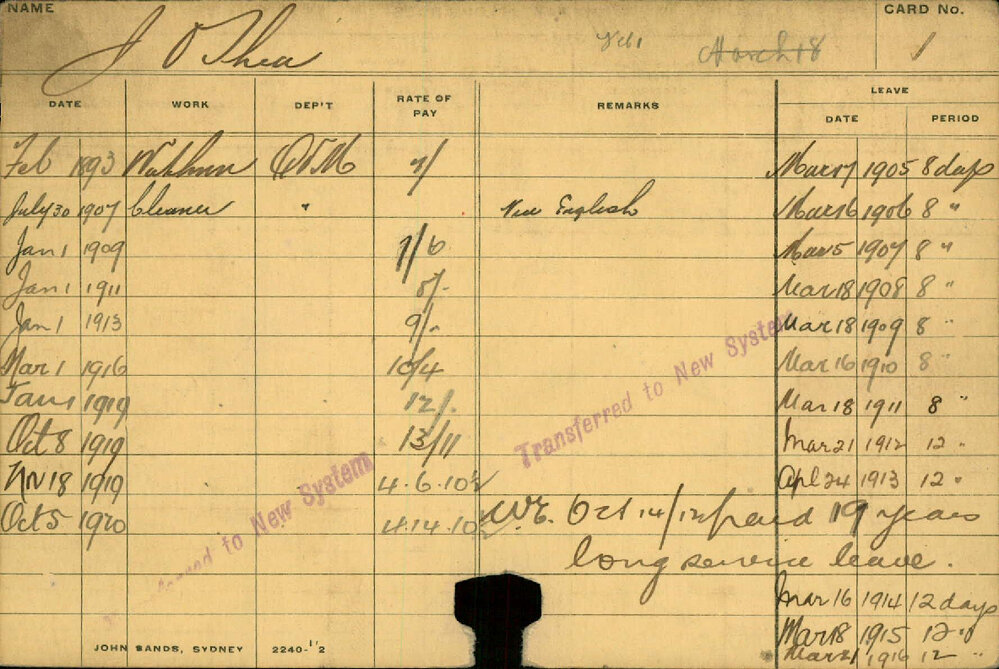 NAME
CARD No.
J O'Shea
Feb 1
March 18
1
DATE WORK DEP'T RATE OF PAY REMARKS LEAVE
DATE PERIOD
Feb 1893 DTM 7/ Mar 17 1905 8 days
July 30 1907 Cleaner " Vice English Mar 16 1906 8 "
Jan 1 1909 7/6 Mar 5 1907 8 "
Jan 1 1911 8/- Mar 18 1908 8 "
Jan 1 1913 9/- Mar 18 1909 8 "
Mar 1 1916 10/4 Mar 16 1910 8 "
Jan 1 1919 12/- Mar 18 1911 8 "
Oct 8 1919 13/11 Mar 21 1912 12 "
Nv 18 1919 4.6.10½ Apl 24 1913 12 "
Oct 5 1920 4.14.10 W.E. Oct 14/12 paid 19 years
long service leave.
Mar 16 1914 12 days
Mar 18 1915 12 "
Mar 21 1916 12 "
Transferred to New System
to New System
JOHN SANDS, SYDNEY 2240-11'2